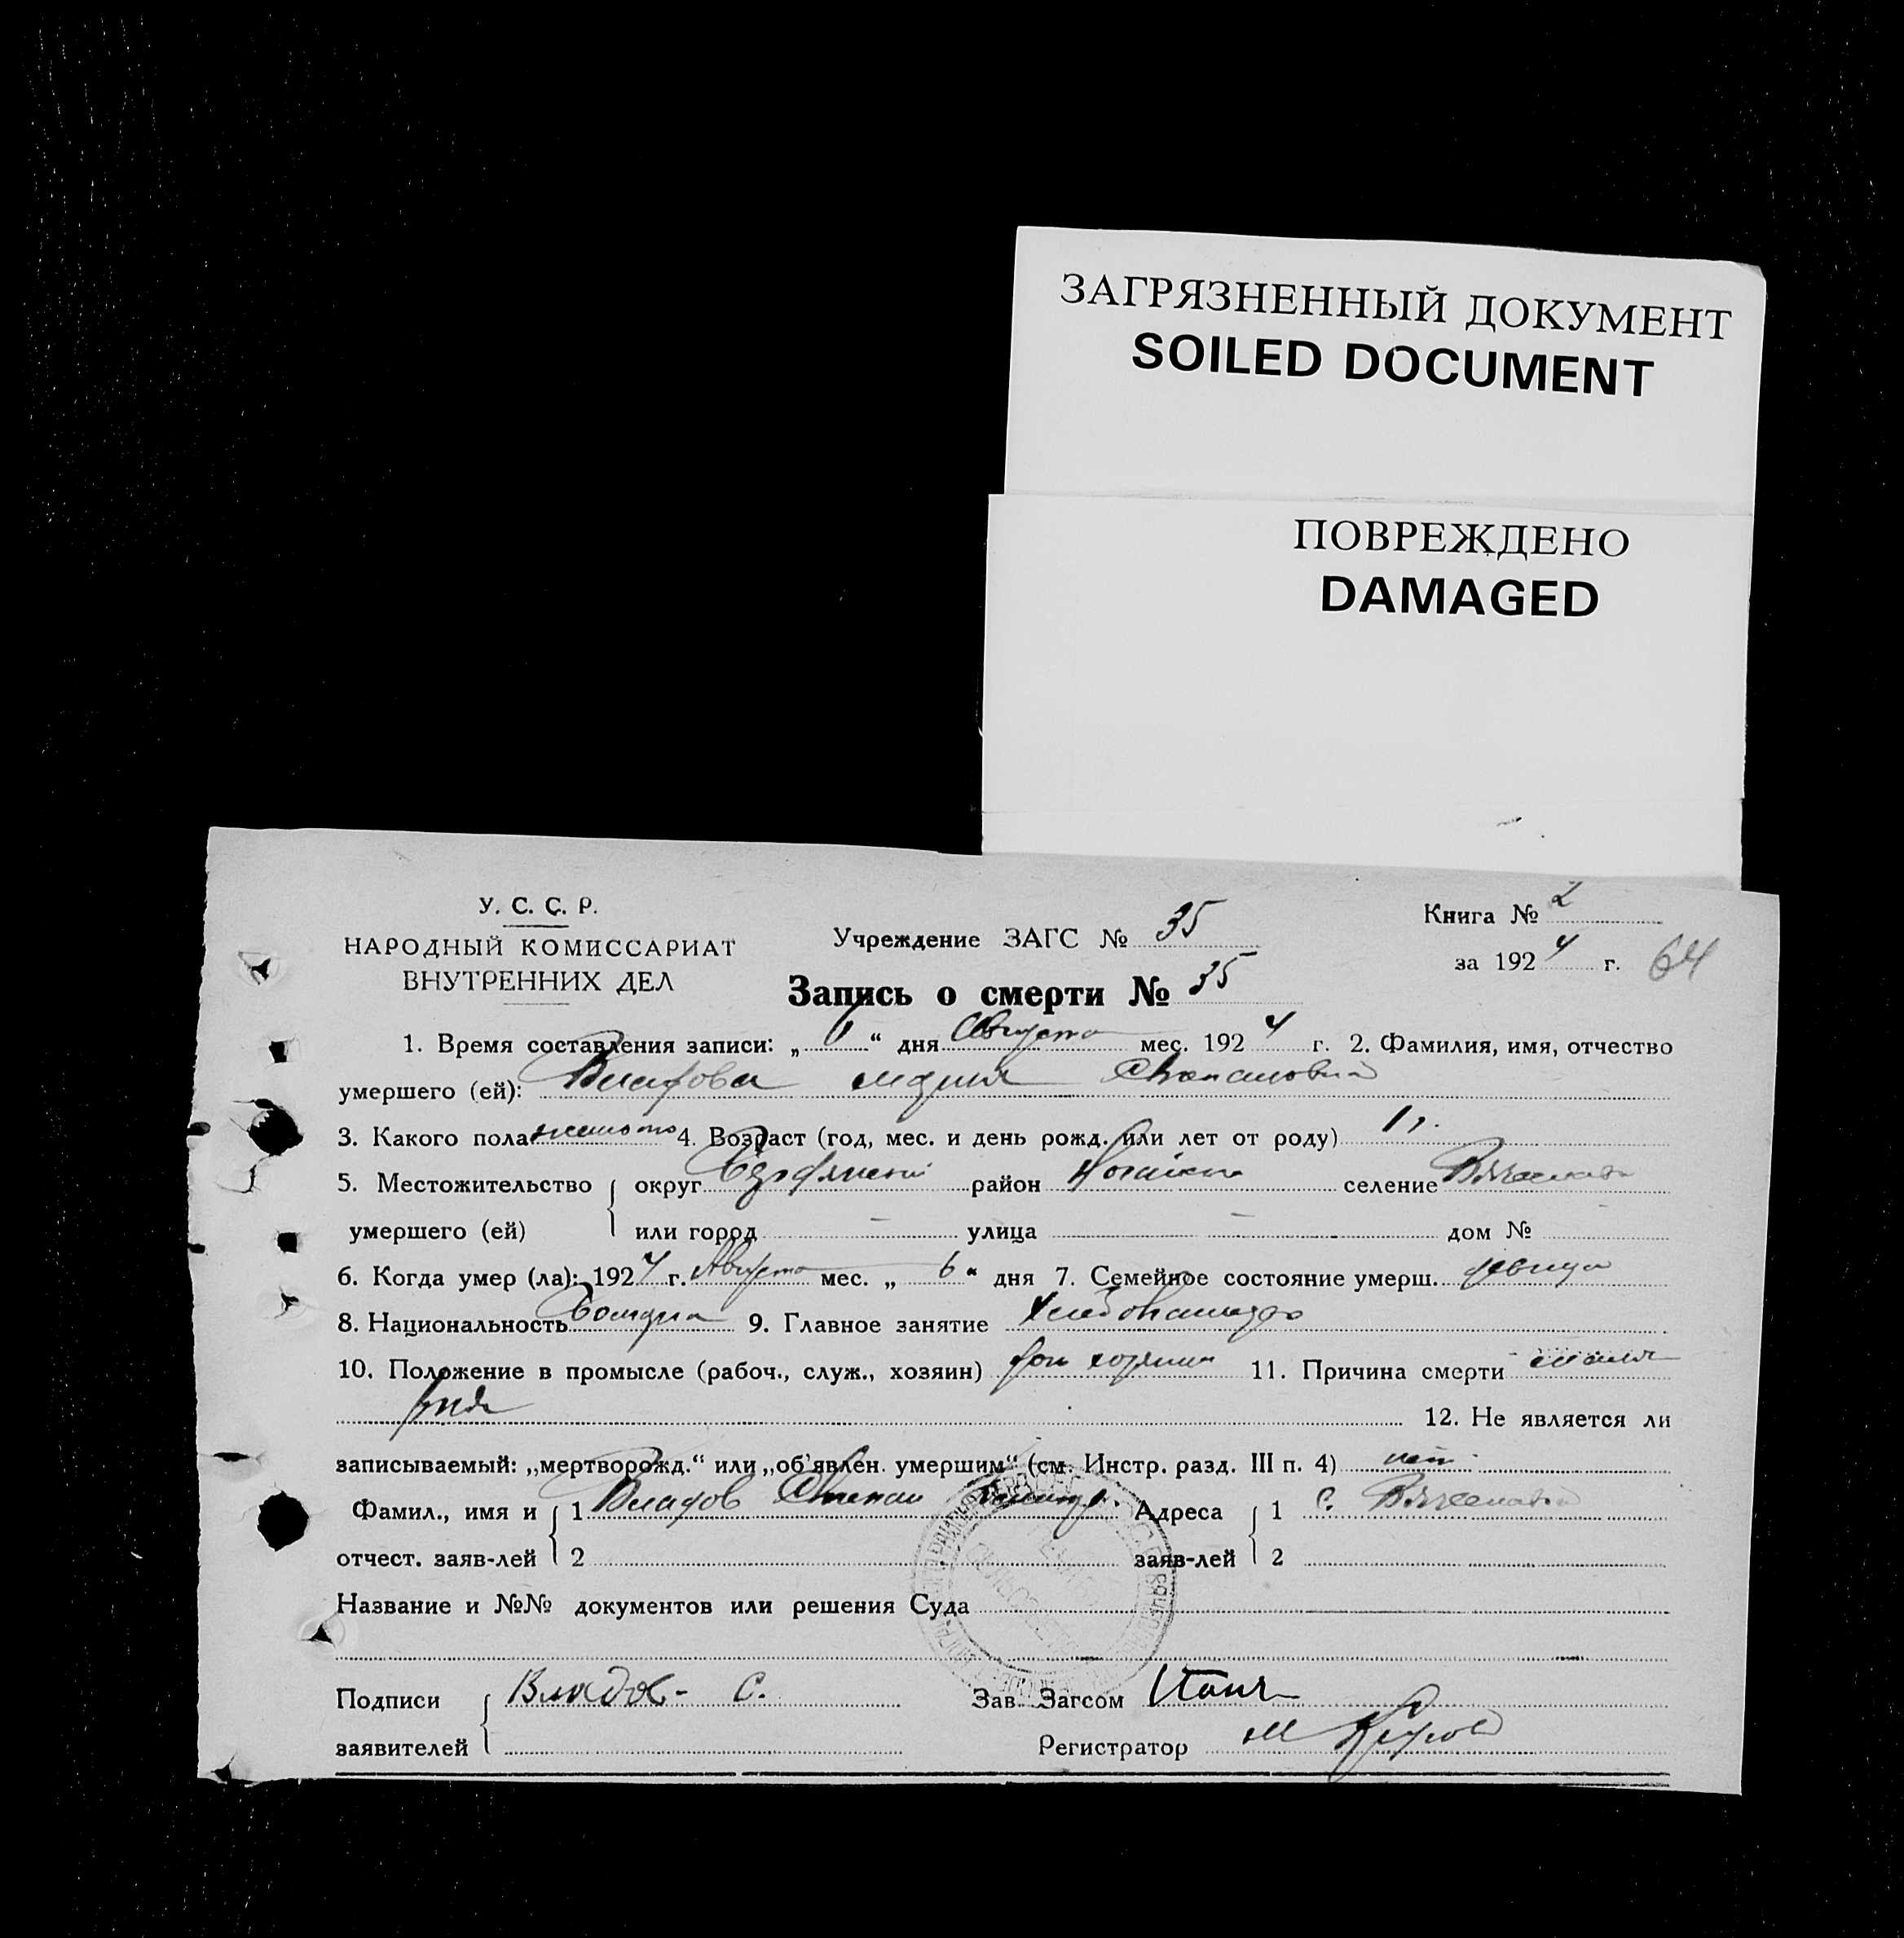 ЗАГРЯЗНЕННЫЙ ДОКУМЕНТ
SOILED DOCUMENT
ПОВРЕЖДЕНО
DAMAGED
У. С. С. Р.
НАРОДНЫЙ КОМИССАРИАТ
ВНУТРЕННИХ ДЕЛ
Учреждение ЗАГС № 35
Запись о смерти № 35
Книга № 2
за 1924 г. 64
1. Время составления записи: „6“ дня Августа мес. 1924 г. 2. Фамилия, имя, отчество
умершего (ей): Владова Мария Степановна
3. Какого пола женского 4. Возраст (год, мес. и день рожд. или лет от роду) 1 г.
5. Местожительство округ Бердянский район Ногайский селение
умершего (ей) или город — улица — дом №
6. Когда умер (ла): 1924 г. Августа мес. „6“ дня 7. Семейное состояние умерш. девица
8. Национальность 9. Главное занятие хлебопашество
10. Положение в промысле (рабоч., служ., хозяин) дочь хозяина 11. Причина смерти
12. Не является ли
записываемый: „мертворожд.“ или „об'явлен. умершим“ (см. Инстр. разд. III п. 4) нет
Фамил., имя и 1 Владов Степан Адреса 1 с.
отчест. заяв-лей 2 заяв-лей 2
Название и №№ документов или решения Суда
Подписи Владов С. Зав. Загсом
заявителей Регистратор М